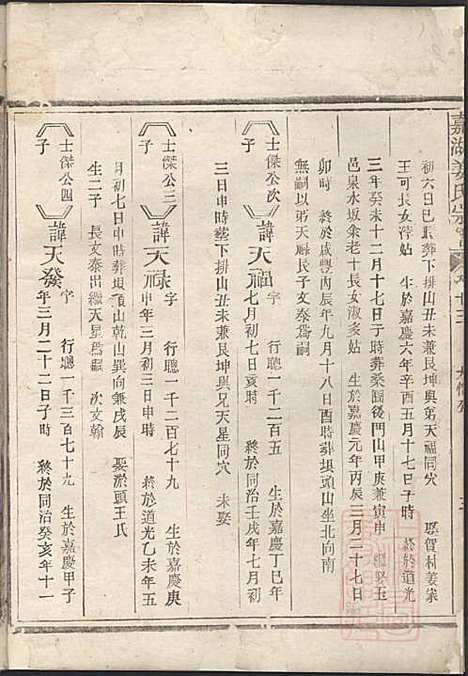 嘉湖姜氏宗
初六日巳時葬下排山丑未兼艮坤與弟天福同穴 娶賀村姜崇
王可長女淳姑 生於嘉慶六年辛酉五月十七日子時 終於道光
三年癸未十二月十七日子時葬桑園後門山甲庚兼寅申 繼娶玉
邑泉水坂余老十長女淑多姑 生於嘉慶元年丙辰三月二十七日
卯時 終於咸豐丙辰年九月十八日酉時葬垻頭山坐北向南
無嗣以弟天祿氏子文泰爲嗣
士傑公次子 諱天福 字 行聰一千二百五 生於嘉慶丁巳年七月初七日亥時 終於同治壬戌年七月初
三日申時葬下排山丑未兼艮坤與兄天星同穴 未娶
士傑公三子 諱天祿 字 行聰一千二百七十九 生於嘉慶庚申年三月初三日申時 終於道光乙未年五
月初七日申時葬垻頭山乾山巽向兼戌辰 娶淤頭王氏
生二子 長文泰出繼天星爲嗣 次文翰
士傑公四子 諱天發 字 行聰一千三百七十九 生於嘉慶甲子年三月二十二日子時 終於同治癸亥年十一